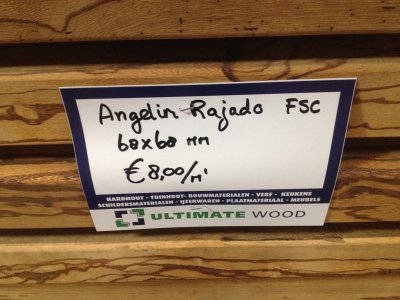 Angelin-Rajado FSC
68x68 mm
€8,00/m'
HARDHOUT - TUINHOUT - BOUWMATERIALEN - VERF - KEUKENS
SCHILDERSMATERIALEN - IJZERWAREN - PLAATMATERIAAL - MEUBELS
ULTIMATE WOOD